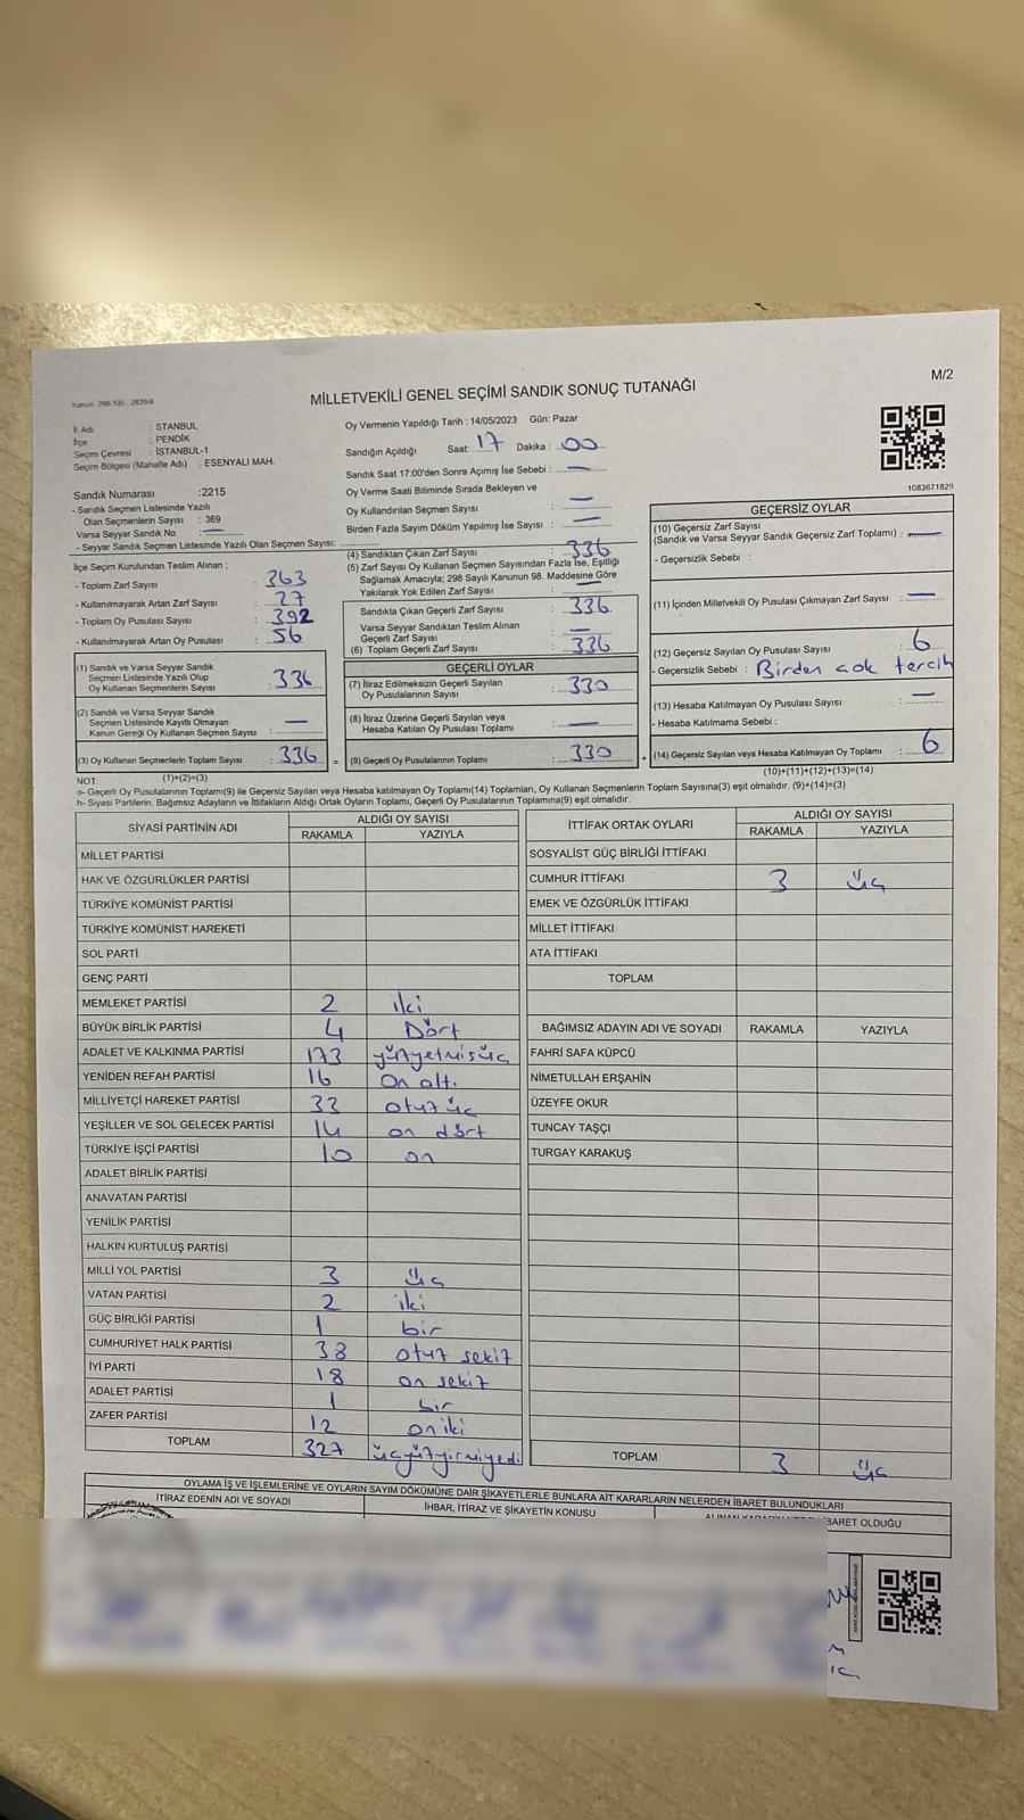 M/2
MİLLETVEKİLİ GENEL SEÇİMİ SANDIK SONUÇ TUTANAĞI
İl Adı : İSTANBUL
İlçe : PENDİK
Seçim Çevresi : İSTANBUL-1
Seçim Bölgesi (Mahalle Adı) : ESENYALI MAH.
Sandık Numarası :2215
- Sandık Seçmen Listesinde Yazılı
Olan Seçmenlerin Sayısı : 369
Varsa Seyyar Sandık No : —
- Seyyar Sandık Seçmen Listesinde Yazılı Olan Seçmen Sayısı:
Oy Vermenin Yapıldığı Tarih : 14/05/2023 Gün: Pazar
Sandığın Açıldığı Saat: 17 Dakika : 00
Sandık Saat 17:00'den Sonra Açımış İse Sebebi : —
Oy Verme Saati Bitiminde Sırada Bekleyen ve
Oy Kullandırılan Seçmen Sayısı : —
Birden Fazla Sayım Döküm Yapılmış İse Sayısı : —
1083671829
İlçe Seçim Kurulundan Teslim Alınan ;
- Toplam Zarf Sayısı : 363
- Kullanılmayarak Artan Zarf Sayısı : 27
- Toplam Oy Pusulası Sayısı : 392
- Kullanılmayarak Artan Oy Pusulası : 56
(1) Sandık ve Varsa Seyyar Sandık
Seçmen Listesinde Yazılı Olup
Oy Kullanan Seçmenlerin Sayısı : 336
(2) Sandık ve Varsa Seyyar Sandık
Seçmen Listesinde Kayıtlı Olmayan
Kanun Gereği Oy Kullanan Seçmen Sayısı : —
(3) Oy Kullanan Seçmenlerin Toplam Sayısı : 336 =
(4) Sandıktan Çıkan Zarf Sayısı : 336
(5) Zarf Sayısı Oy Kullanan Seçmen Sayısından Fazla İse, Eşitliği
Sağlamak Amacıyla; 298 Sayılı Kanunun 98. Maddesine Göre
Yakılarak Yok Edilen Zarf Sayısı : —
Sandıkta Çıkan Geçerli Zarf Sayısı : 336
Varsa Seyyar Sandıktan Teslim Alınan
Geçerli Zarf Sayısı : —
(6) Toplam Geçerli Zarf Sayısı : 336
GEÇERLİ OYLAR
(7) İtiraz Edilmeksizin Geçerli Sayılan
Oy Pusulalarının Sayısı : 330
(8) İtiraz Üzerine Geçerli Sayılan veya
Hesaba Katılan Oy Pusulası Toplamı : —
(9) Geçerli Oy Pusulalarının Toplamı : 330 +
GEÇERSİZ OYLAR
(10) Geçersiz Zarf Sayısı
(Sandık ve Varsa Seyyar Sandık Geçersiz Zarf Toplamı) : —
- Geçersizlik Sebebi :
(11) İçinden Milletvekili Oy Pusulası Çıkmayan Zarf Sayısı : —
(12) Geçersiz Sayılan Oy Pusulası Sayısı : 6
- Geçersizlik Sebebi : Birden çok tercih
(13) Hesaba Katılmayan Oy Pusulası Sayısı : —
- Hesaba Katılmama Sebebi :
(14) Geçersiz Sayılan veya Hesaba Katılmayan Oy Toplamı : 6
NOT: (1)+(2)=(3)
(10)+(11)+(12)+(13)=(14)
a- Geçerli Oy Pusulalarının Toplamı(9) ile Geçersiz Sayılan veya Hesaba katılmayan Oy Toplamı(14) Toplamları, Oy Kullanan Seçmenlerin Toplam Sayısına(3) eşit olmalıdır. (9)+(14)=(3)
b- Siyasi Partilerin, Bağımsız Adayların ve İttifakların Aldığı Ortak Oyların Toplamı, Geçerli Oy Pusulalarının Toplamına(9) eşit olmalıdır.
SİYASİ PARTİNİN ADI ALDIĞI OY SAYISI
RAKAMLA YAZIYLA
MİLLET PARTİSİ
HAK VE ÖZGÜRLÜKLER PARTİSİ
TÜRKİYE KOMÜNİST PARTİSİ
TÜRKİYE KOMÜNİST HAREKETİ
SOL PARTİ
GENÇ PARTİ
MEMLEKET PARTİSİ 2 iki
BÜYÜK BİRLİK PARTİSİ 4 Dört
ADALET VE KALKINMA PARTİSİ 173 yüzyetmişüç
YENİDEN REFAH PARTİSİ 16 On altı
MİLLİYETÇİ HAREKET PARTİSİ 33 otuz üç
YEŞİLLER VE SOL GELECEK PARTİSİ 14 on dört
TÜRKİYE İŞÇİ PARTİSİ 10 on
ADALET BİRLİK PARTİSİ
ANAVATAN PARTİSİ
YENİLİK PARTİSİ
HALKIN KURTULUŞ PARTİSİ
MİLLİ YOL PARTİSİ 3 üç
VATAN PARTİSİ 2 iki
GÜÇ BİRLİĞİ PARTİSİ 1 bir
CUMHURİYET HALK PARTİSİ 38 otuz sekiz
İYİ PARTİ 18 on sekiz
ADALET PARTİSİ 1 bir
ZAFER PARTİSİ 12 oniki
TOPLAM 327 üçyüzyirmiyedi
İTTİFAK ORTAK OYLARI ALDIĞI OY SAYISI
RAKAMLA YAZIYLA
SOSYALİST GÜÇ BİRLİĞİ İTTİFAKI
CUMHUR İTTİFAKI 3 üç
EMEK VE ÖZGÜRLÜK İTTİFAKI
MİLLET İTTİFAKI
ATA İTTİFAKI
TOPLAM
BAĞIMSIZ ADAYIN ADI VE SOYADI RAKAMLA YAZIYLA
FAHRİ SAFA KÜPCÜ
NİMETULLAH ERŞAHİN
ÜZEYFE OKUR
TUNCAY TAŞÇI
TURGAY KARAKUŞ
TOPLAM 3 üç
OYLAMA İŞ VE İŞLEMLERİNE VE OYLARIN SAYIM DÖKÜMÜNE DAİR ŞİKAYETLERLE BUNLARA AİT KARARLARIN NELERDEN İBARET BULUNDUKLARI
İTİRAZ EDENİN ADI VE SOYADI İHBAR, İTİRAZ VE ŞİKAYETİN KONUSU İBARET OLDUĞU